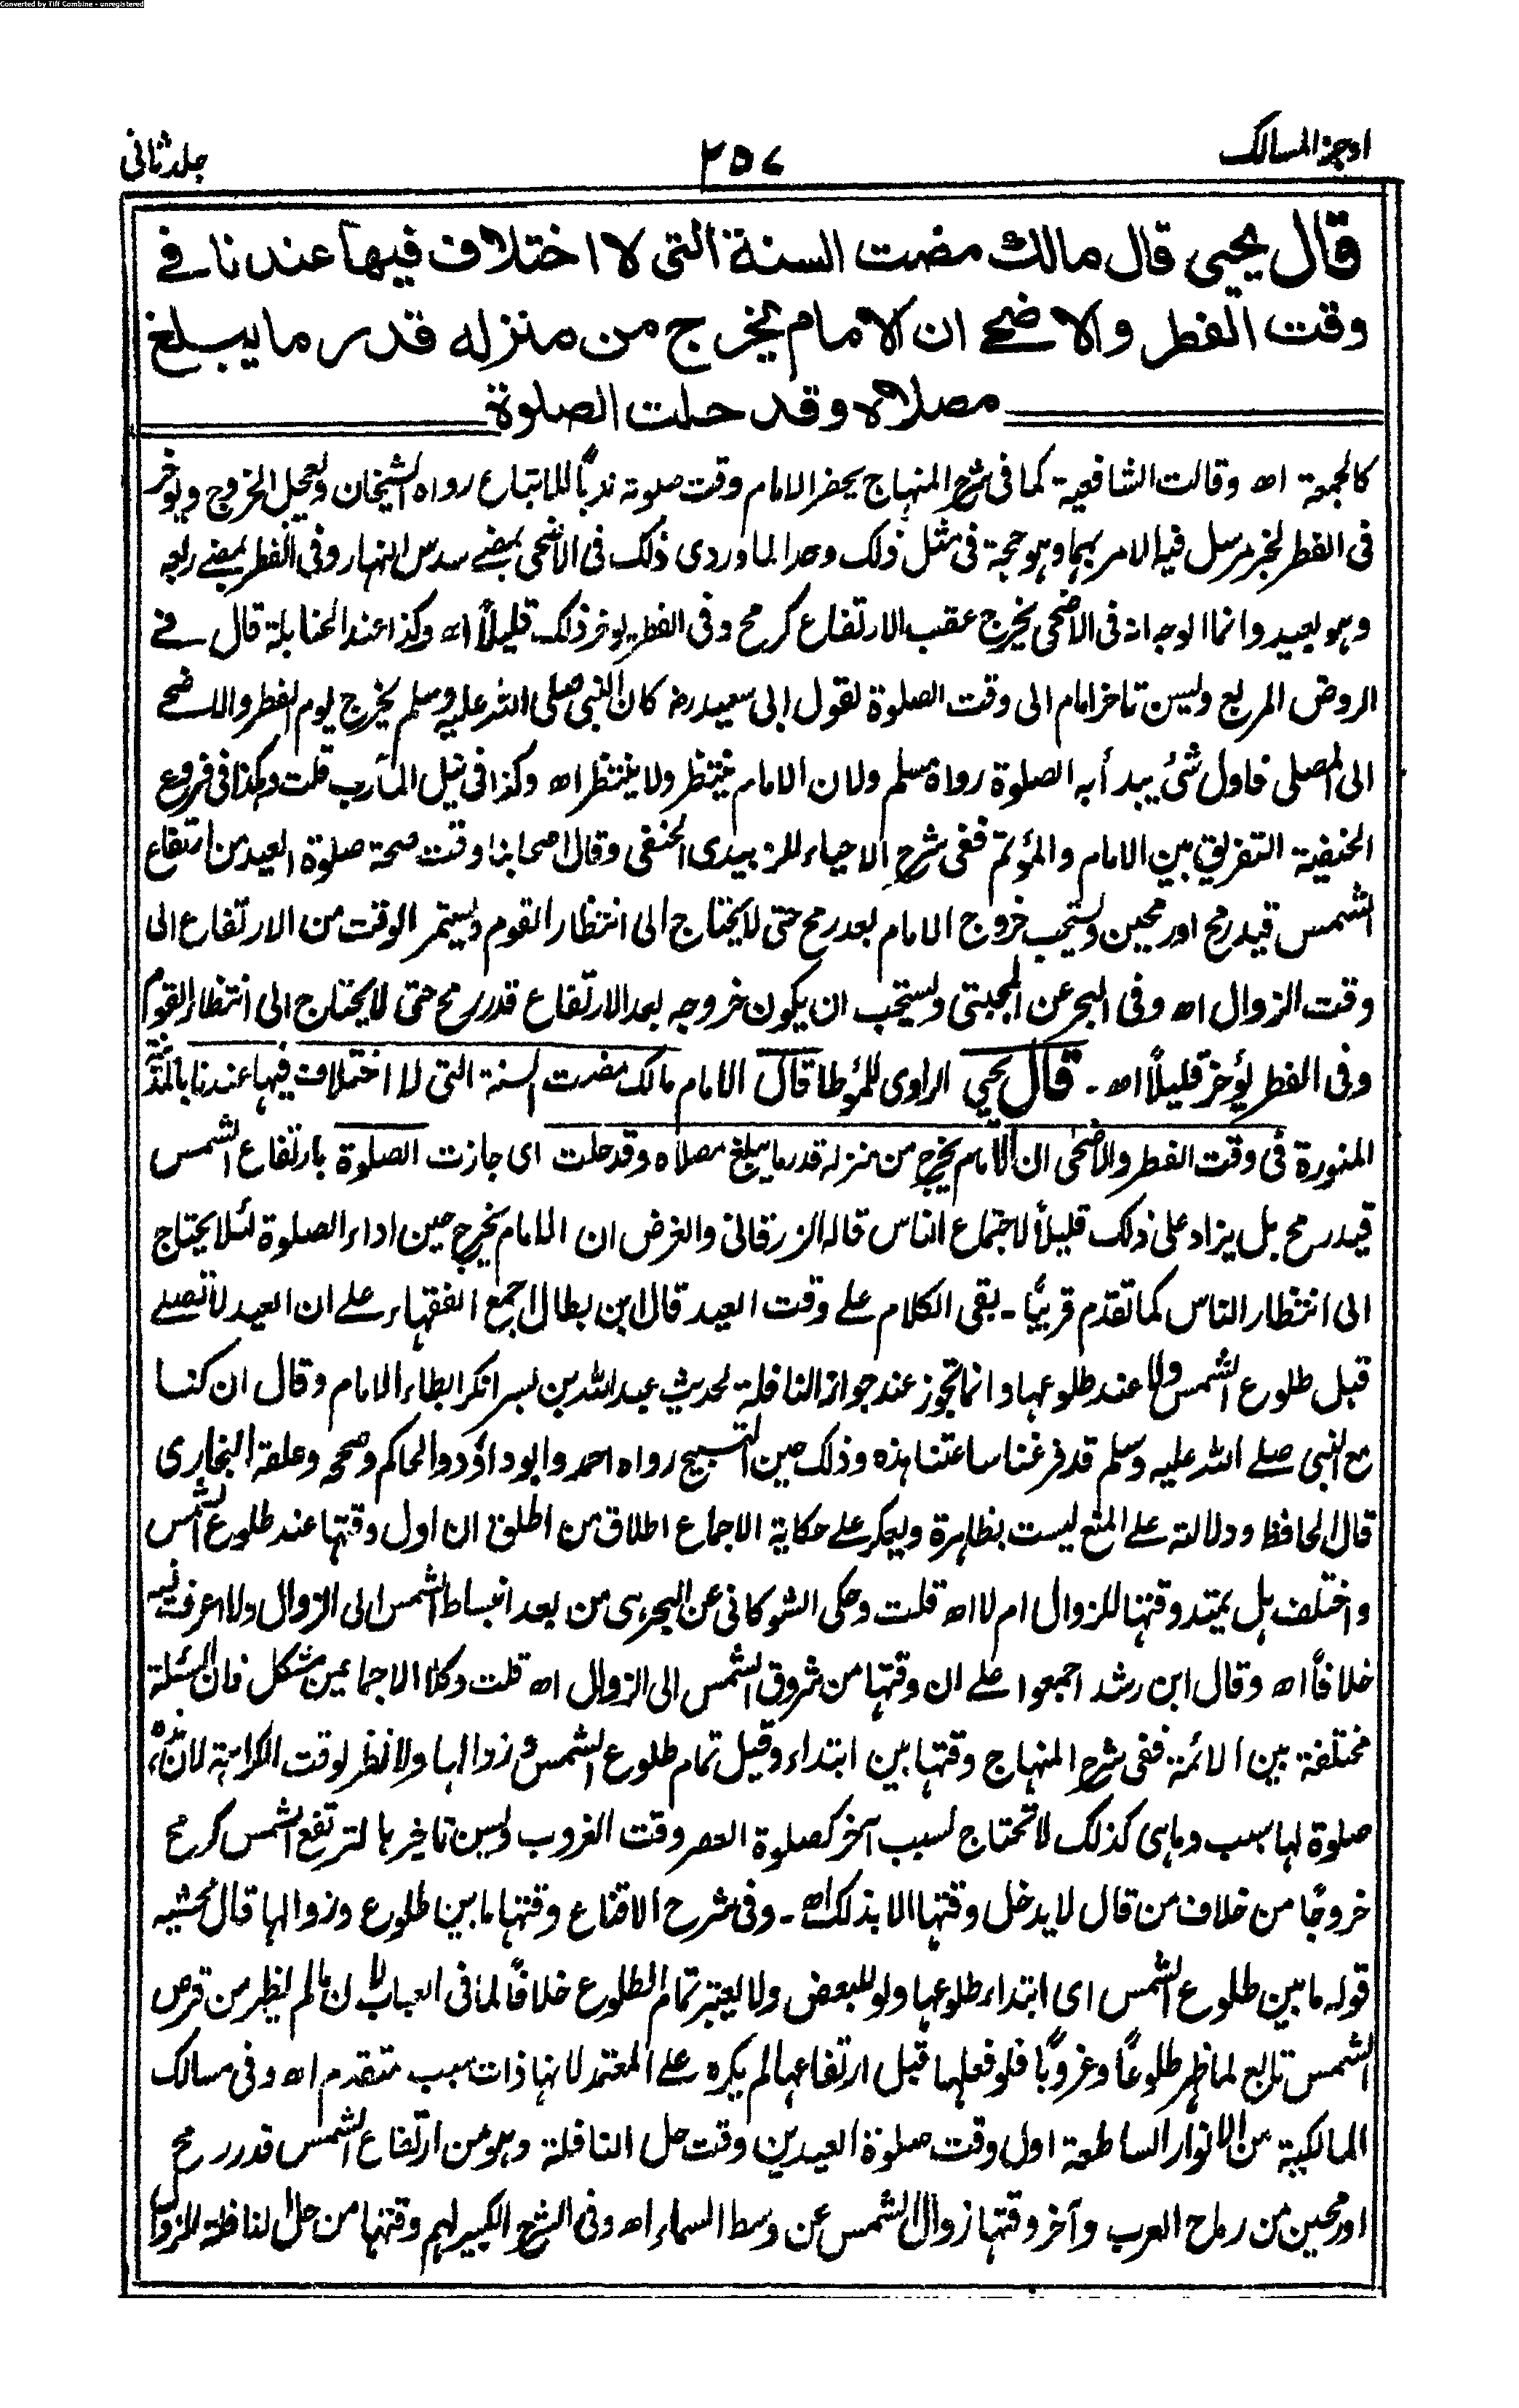 Converted by Tiff Combine - unregistered
اوجز المسالك
٢٥٧
جلد ثانی
قال يحيى قال مالك مضت السنة التى لا اختلاف فيها عندنا فے
وقت الفطر والاضحے ان الامام يخرج من منزله قدر ما يبلغ
مصلاه وقد حلت الصلوة
كالجمعة اھ وقالت الشافعية كما فى شرح المنهاج يحضر الامام وقت صلوته ندبًا للاتباع رواه الشيخان ويعجل الخروج ويؤخر
فى الفطر لخبر مرسل فيه الامر بهما وهو حجة فى مثل ذلك وحد الماوردى ذلك فى الاضحى بمضے سدس النهار وفى الفطر بمضے ربعه
وهو بعيد وانما الوجه انه فى الاضحى يخرج عقب الارتفاع كرمح وفى الفطر يؤخر ذلك قليلاً اھ وكذا عند الحنابلة قال فے
الروض المربع ويسن تاخر امام الى وقت الصلوة لقول ابى سعيد رض كان النبى صلى الله عليه وسلم يخرج يوم الفطر والاضحے
الى المصلى فاول شئ يبدأ به الصلوة رواه مسلم ولان الامام ينتظر ولا ينتظر اھ وكذا فى نيل المآرب قلت وهكذا فى فروع
الحنفية التفريق بين الامام والمؤتم ففى شرح الاحياء للزبيدى الحنفى وقال اصحابنا وقت صحة صلوة العيد من ارتفاع
الشمس قيد رمح او رمحين ويستحب خروج الامام بعد رمح حتى لا يحتاج الى انتظار القوم ويستمر الوقت من الارتفاع الى
وقت الزوال اھ وفى البحر عن المجتبى ويستحب ان يكون خروجه بعد الارتفاع قدر رمح حتى لا يحتاج الى انتظار القوم
وفى الفطر يؤخر قليلاً اھ ۔ قال يحيى الراوى للمؤطا قال الامام مالك مضت السنة التى لا اختلاف فيها عندنا بالمدينة
المنورة فى وقت الفطر والاضحى ان الامام يخرج من منزله قدر ما يبلغ مصلاه وقد حلت اى جازت الصلوة بارتفاع الشمس
قيد رمح بل يزاد على ذلك قليلاً لاجتماع الناس قاله الزرقانى والغرض ان الامام يخرج حين اداء الصلوة لئلا يحتاج
الى انتظار الناس كما تقدم قريبًا ۔ بقى الكلام علے وقت العيد قال ابن بطال اجمع الفقهاء علے ان العيد لا تصلے
قبل طلوع الشمس ولا عند طلوعها وانما تجوز عند جواز النافلة لحديث عبد الله بن بسر انكر ابطاء الامام وقال ان كنا
مع النبى صلے الله عليه وسلم قد فرغنا ساعتنا هذه وذلك حين التسبيح رواه احمد وابو داؤد والحاكم وصححه وعلقه البخارى
قال الحافظ ودلالته علے المنع ليست بظاهرة ويعكر علے حكاية الاجماع اطلاق من اطلق ان اول وقتها عند طلوع الشمس
واختلف هل يمتد وقتها للزوال ام لا اھ قلت وحكى الشوكانى عن البحر هى من بعد انبساط الشمس الى الزوال ولا اعرف فيه
خلافاً اھ وقال ابن رشد اجمعوا علے ان وقتها من شروق الشمس الى الزوال اھ قلت وكلا الاجماعين مشكل فان المسئلة
مختلفة بين الائمة ففى شرح المنهاج وقتها بين ابتداء وقيل تمام طلوع الشمس وزوالها ولا نظر لوقت الكراهة لان هذه
صلوة لها سبب وما هى كذلك لا تحتاج لسبب آخر كصلوة العصر وقت الغروب ويسن تاخيرها لترتفع الشمس كرمح
خروجًا من خلاف من قال لا يدخل وقتها الا بذلك اھ ۔ وفى شرح الاقناع وقتها ما بين طلوع وزوالها قال محشيه
قوله ما بين طلوع الشمس اى ابتداء طلوعها ولو للبعض ولا يعتبر تمام الطلوع خلافاً لما فى العباب لان ما لم يظهر من قرص
الشمس تابع لما ظهر طلوعًا وغروبًا فلو فعلها قبل ارتفاعها لم يكره علے المعتمد لانها ذات سبب متقدم اھ وفى مسالك
المالكية من الانوار الساطعة اول وقت صلوة العيدين وقت حل النافلة وهو من ارتفاع الشمس قدر رمح
او رمحين من رماح العرب وآخر وقتها زوال الشمس عن وسط السماء اھ وفى الشرح الكبير لهم وقتها من حل النافلة للزوال